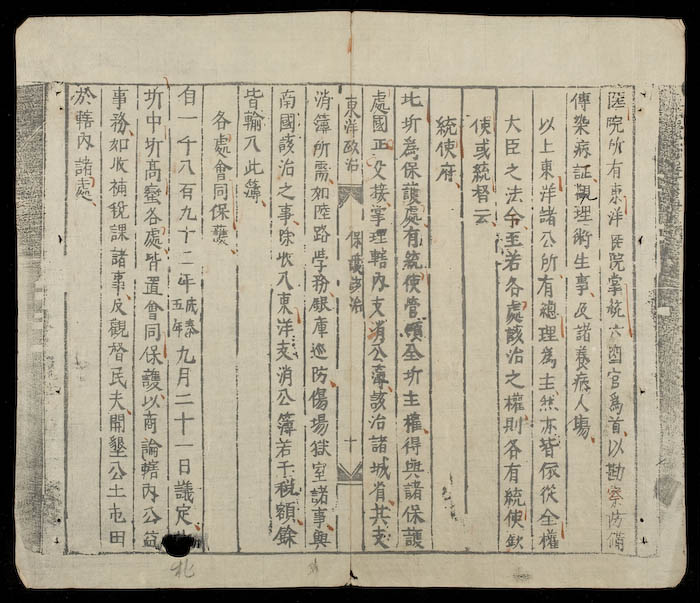 陸院所有東洋医院掌統六啚官為首以勘察防備
傳染病証觀理術生事及諸養病人塲
以上東洋諸公所有總理為主然亦皆依從全權
大臣之法令至若各處該治之權則各有統使欽
使或統督云
統使府
北圻為保護處有統使管領全圻主權得與諸保護
處國正交接掌理轄內支消公簿該治諸城省其支
東洋政治 保護該治 十
消簿所需如陸路學務銀庫巡防傷塲獄室諸事與
南國該治之事除收入東洋支消公簿若干税額餘
皆輸入此簿
各處會同保護
自一千八百九十二年成泰五年九月二十一日議定
圻中圻高蠻各處皆置會同保護以商論轄內公益
事務如收補税課諸事及觀督民夫開墾公土屯田
於轄內諸處
北